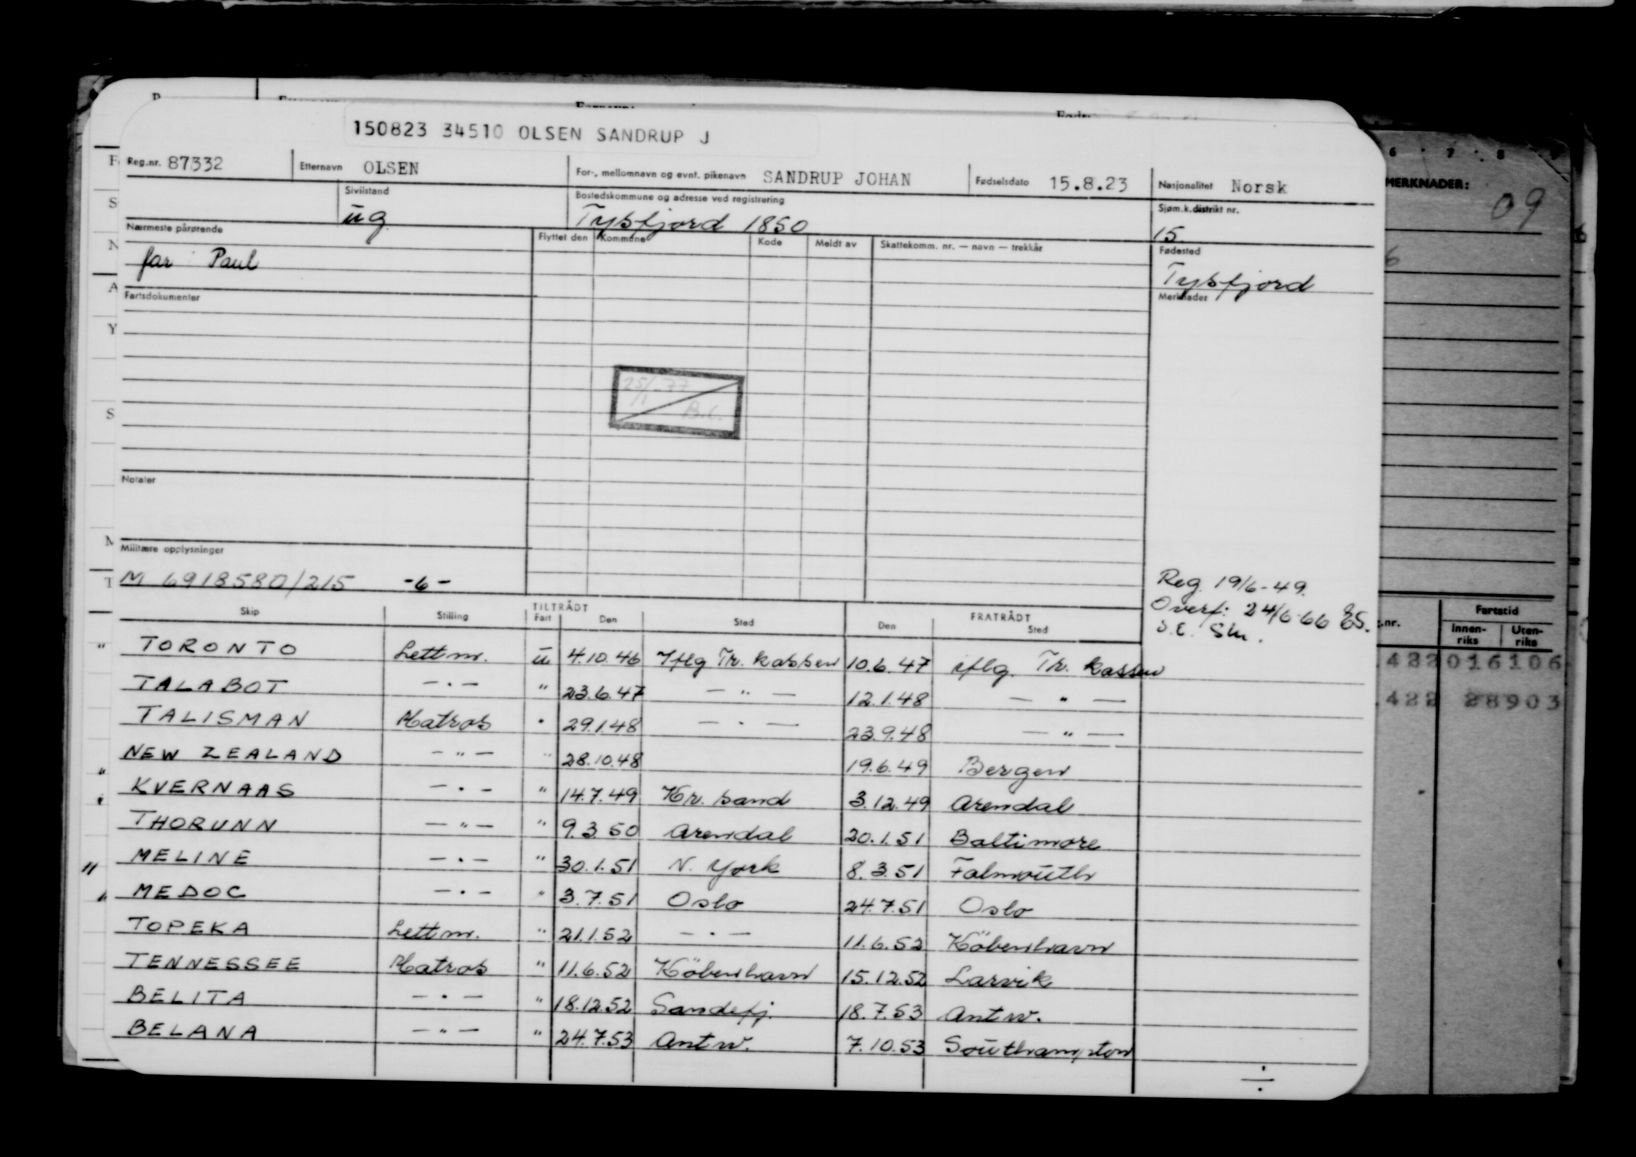 150823 34510 OLSEN SANDRUP J
Reg.nr. 87332 Etternavn OLSEN For-, mellomnavn og evnt. pikenavn SANDRUP JOHAN Fødselsdato 15.8.23 Nasjonalitet Norsk
Sivilstand ug Bostedskommune og adresse ved registrering Tysfjord 1850 Sjøm.k.distrikt nr. 15.
Nærmeste pårørende Flyttet den Kommune Kode Meldt av Skattekomm. nr. — navn — trekkår Fødested
far Paul Tysfjord
Fartsdokumenter Merknader
25/1 77
B.C.
Notater
Militære opplysninger
M 6918580/215 -6-
Reg. 19/6-49.
Overf: 24/6-66
Skip Stilling TILTRÅDT Fart Den Sted FRATRÅDT Den Sted
TORONTO Lettm. u 4.10.46 Iflg Tr. kassen 10.6.47 iflg. Tr. kassen
TALABOT — " — " 23.6.47 — " — 12.1.48 — " —
TALISMAN Matros " 29.1.48 — " — 23.9.48 — " —
NEW ZEALAND — " — " 28.10.48 19.6.49 Bergen
KVERNAAS — " — " 14.7.49 Kr. sand 3.12.49 Arendal
THORUNN — " — " 9.3.50 Arendal 20.1.51 Baltimore
MELINE — " — " 30.1.51 N. York 8.3.51 Falmouth
MEDOC — " — " 3.7.51 Oslo 24.7.51 Oslo
TOPEKA Lettm. " 21.1.52 — " — 11.6.52 Köbenhavn
TENNESSEE Matros " 11.6.52 Köbenhavn 15.12.52 Larvik
BELITA — " — " 18.12.52 Sandefj. 18.7.53 Antw.
BELANA — " — " 24.7.53 Antw. 7.10.53 Southampton
6 7 8
MERKNADER:
09
6
Fartstid
.nr. Innen-riks Uten-riks
422 016106
422 28903